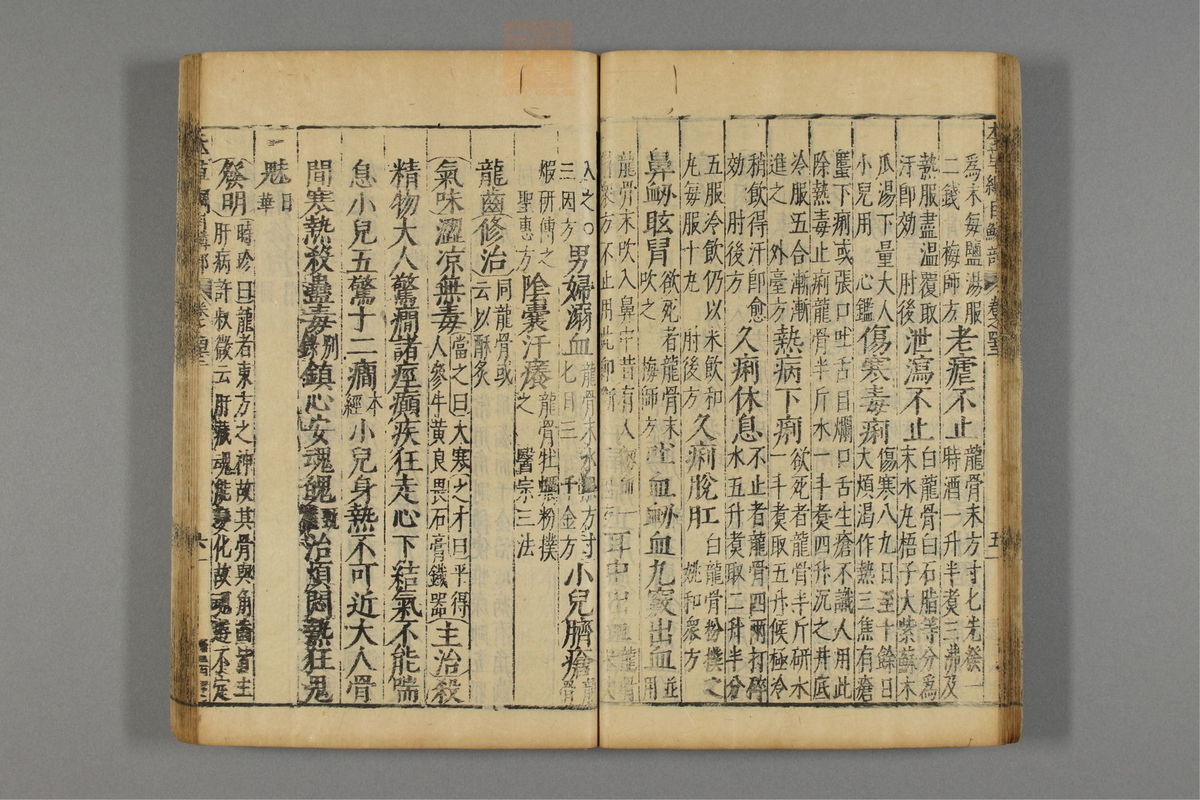 本草綱目鱗部 卷之四十三 五
為末每鹽湯服二錢梅師方 老瘧不止 龍骨末方寸匕先發一時酒一升半煮三沸及
熱服盡溫覆取汗即効 肘後 泄瀉不止 白龍骨白石脂等分為末水丸梧子大紫蘇木
瓜湯下量大人小兒用 心鑑 傷寒毒痢 傷寒八九日至十餘日大煩渴作熱三焦有瘡
䘌下痢或張口吐舌目爛口舌生瘡不識人用此除熱毒止痢龍骨半斤水一斗煮四升沉之井底
冷服五合漸漸進之 外臺方 熱病下痢 欲死者龍骨半斤研水一斗煮取五升候極冷
稍飲得汗即愈効 肘後方 久痢休息 不止者龍骨四兩打碎水五升煮取二升半分
五服冷飲仍以米飲和丸每服十丸 肘後方 久痢脫肛 白龍骨粉撲之 姚和衆方
鼻衂眩冒 欲死者龍骨末吹之 梅師方 吐血衂血九竅出血 並用
龍骨末吹入鼻中昔有人衆方不止用此即 耳中出血 龍骨
入之○三因方 男婦溺血 龍骨末水方寸匕日三 千金方 小兒臍瘡 龍骨
煅研傅之 聖惠方 陰囊汗癢 龍骨牡蠣粉撲之 醫宗三法
龍齒 修治 同龍骨或云以酥炙
氣味 澀凉無毒 當之曰大寒之才曰平得人參牛黃良畏石膏鐵器 主治 殺
精物大人驚癇諸痙癲疾狂走心下結氣不能喘
息小兒五驚十二癇 本經 小兒身熱不可近大人骨
間寒熱殺蠱毒 別錄 鎮心安魂魄 甄權 治煩悶熱狂鬼
魅 日華
發明 時珍曰龍者東方之神故其骨與角齒皆主肝病許叔微云肝藏魂能變化故魂遊不定